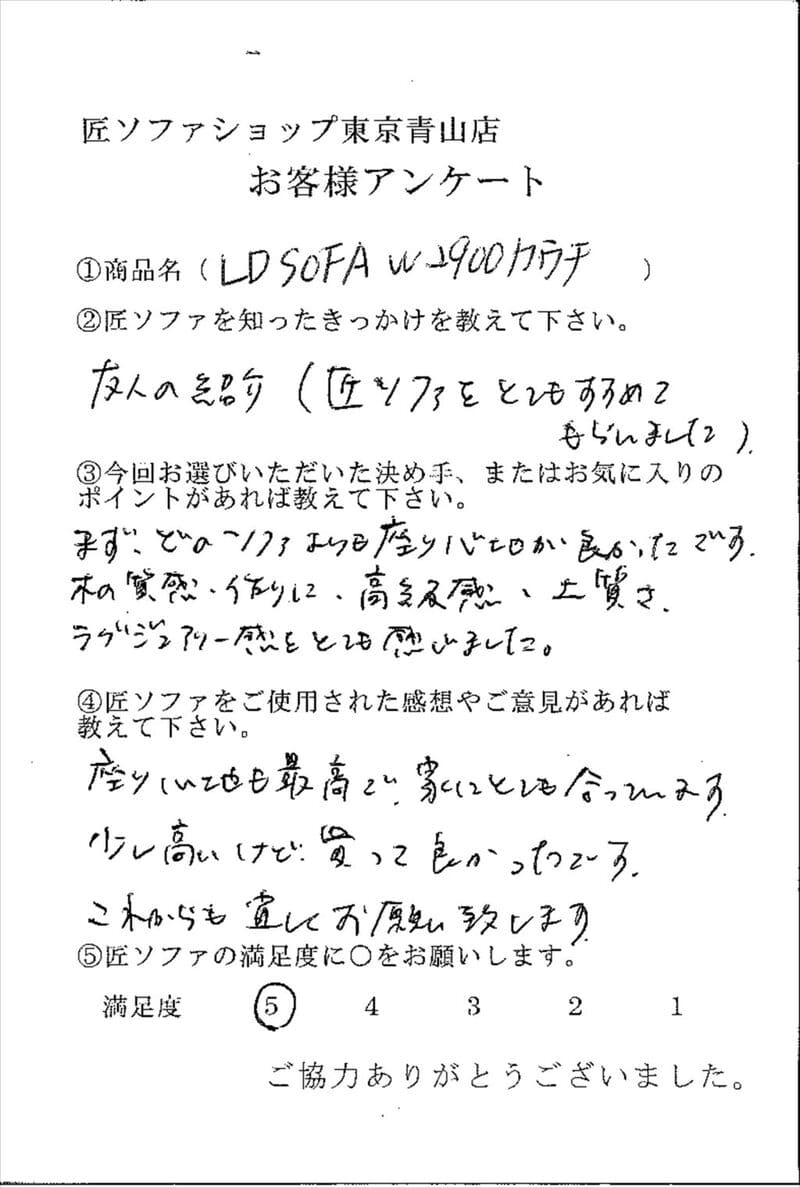 匠ソファショップ東京青山店
お客様アンケート
①商品名（LD SOFA W2900カウチ）
②匠ソファを知ったきっかけを教えて下さい。
友人の紹介（匠ソファをとてもすすめて
もらいました）.
③今回お選びいただいた決め手、またはお気に入りの
ポイントがあれば教えて下さい。
まず、どのソファよりも座り心地が良かったです.
木の質感・作りに、高級感、上質さ、
ラグジュアリー感をとても感じました。
④匠ソファをご使用された感想やご意見があれば
教えて下さい。
座り心地も最高で、家にとても合っています.
少し高いけど、買って良かったです.
これからも宜しくお願い致します
⑤匠ソファの満足度に〇をお願いします。
満足度 5 4 3 2 1
ご協力ありがとうございました。